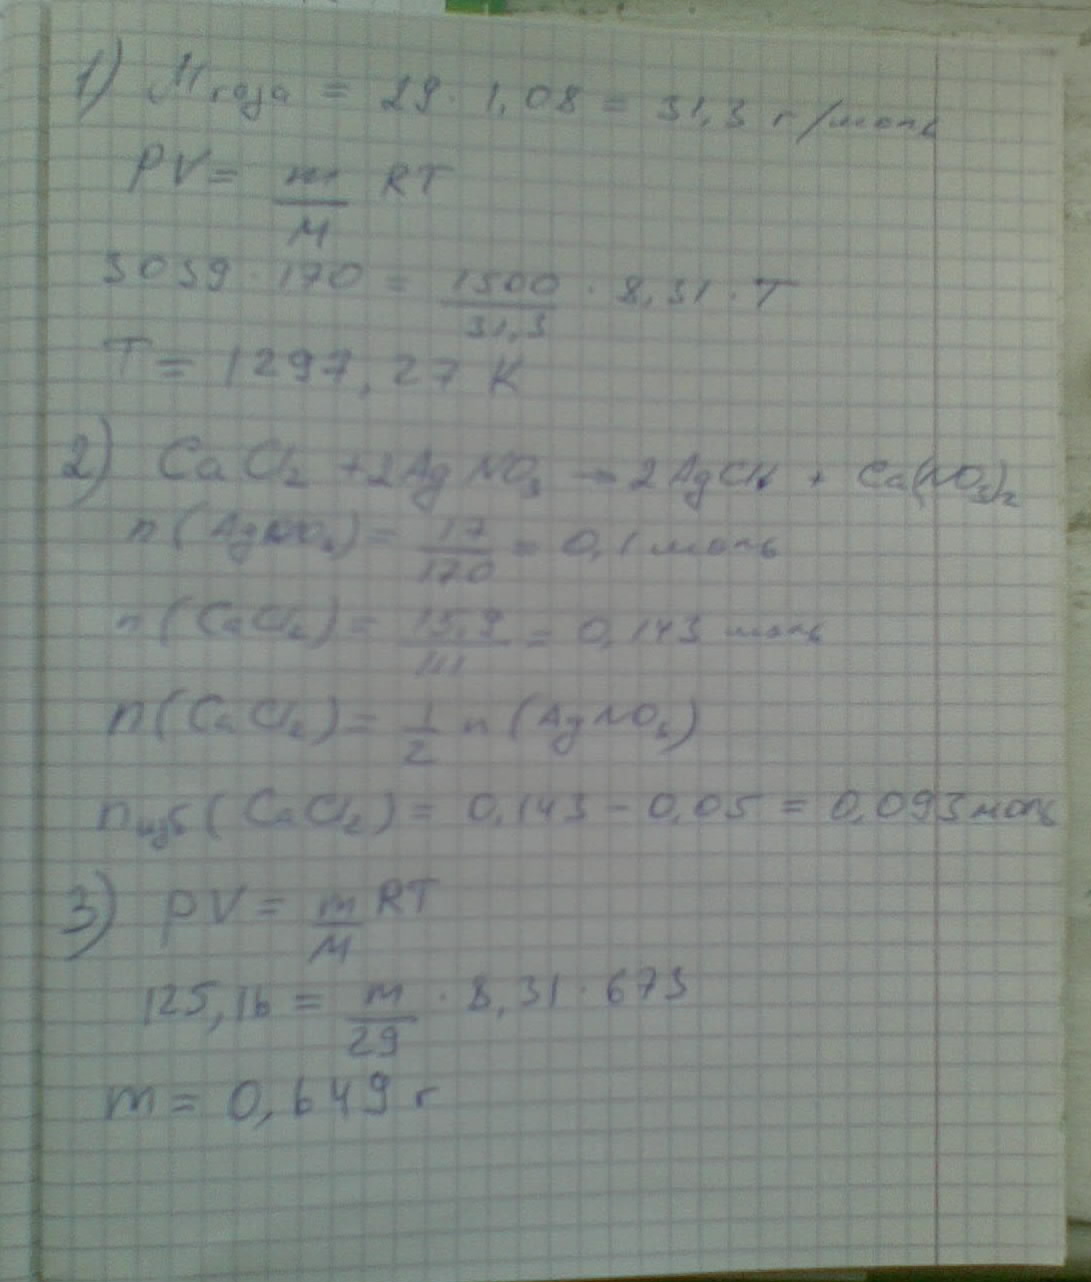 1) Mгаза = 29 · 1,08 = 31,3 г/моль
PV = m/M RT
3039 · 170 = 1500/31,3 · 8,31 · T
T = 1297,27 K
2) CaCl2 + 2AgNO3 → 2AgCl + Ca(NO3)2
n(AgNO3) = 17/170 = 0,1 моль
n(CaCl2) = 15,9/111 = 0,143 моль
n(CaCl2) = 1/2 n(AgNO3)
nизб(CaCl2) = 0,143 - 0,05 = 0,093 моль
3) PV = m/M RT
125,16 = m/29 · 8,31 · 673
m = 0,649 г